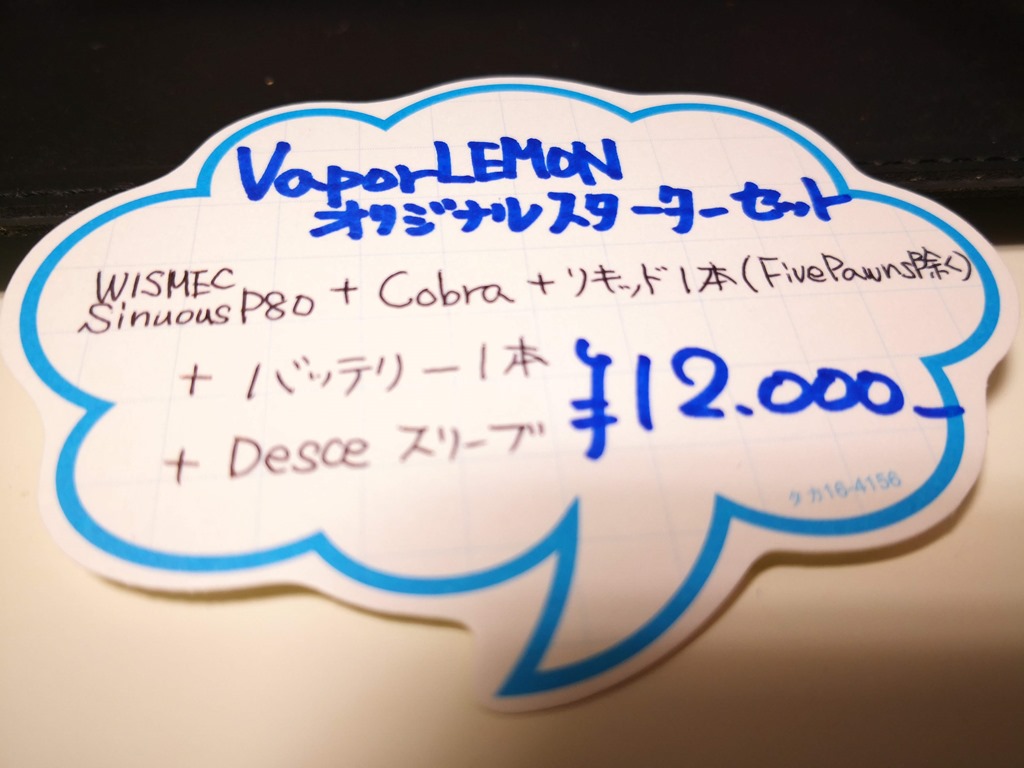 VaporLEMON
オリジナルスターターセット
WISMEC
Sinuous P80 + Cobra + リキッド1本(FivePawns除く)
+ バッテリー1本
+ Desce スリーブ
¥12.000-
タカ16-4156